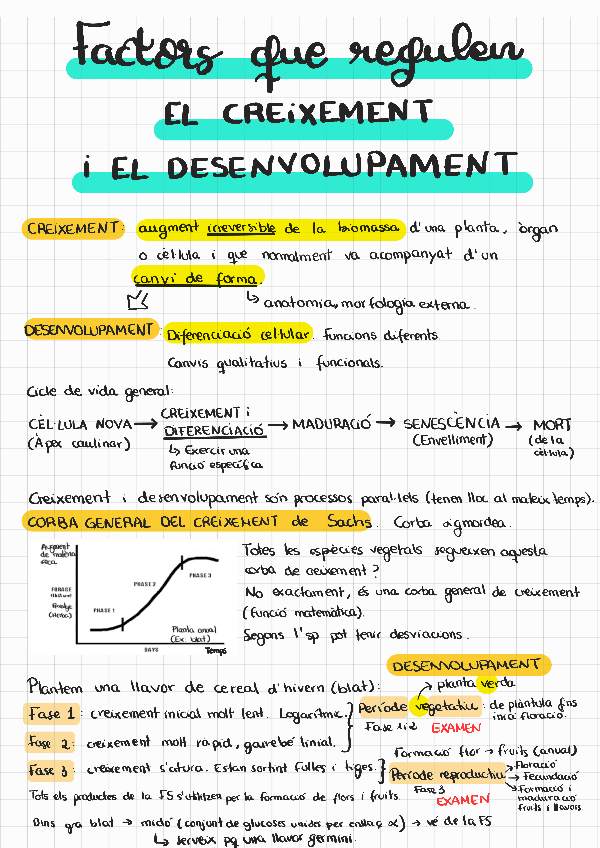 Factors que regulen
EL CREIXEMENT
i EL DESENVOLUPAMENT
CREIXEMENT: augment irreversible de la biomassa d'una planta, òrgan
o cèl·lula i que normalment va acompanyat d'un
canvi de forma.
↳ anatomia, morfologia externa.
DESENVOLUPAMENT: Diferenciació cel·lular. funcions diferents
Canvis qualitatius i funcionals.
Cicle de vida general:
CÈL·LULA NOVA → CREIXEMENT i DIFERENCIACIÓ → MADURACIÓ → SENESCÈNCIA → MORT
(Àpex caulinar)
↳ Exercir una
funció específica
(Envelliment)
(de la
cèl·lula)
Creixement i desenvolupament són processos paral·lels (tenen lloc al mateix temps).
CORBA GENERAL DEL CREIXEMENT de Sachs. Corba sigmoidea.
Augment
de matèria
seca
FORAGE
Fitatge
PHASE 1
PHASE 2
PHASE 3
Planta anual
(Ex: blat)
DAYS
Temps
Totes les espècies vegetals segueixen aquesta
corba de creixement?
No exactament, és una corba general de creixement
(funció matemàtica).
Segons l'sp pot tenir desviacions.
DESENVOLUPAMENT
Plantem una llavor de cereal d'hivern (blat):
→ planta verda
Fase 1: creixement inicial molt lent. Logarítmic.
Període vegetatiu: de plàntula fins
inici floració.
Fase 1 i 2 EXAMEN
Fase 2: creixement molt ràpid, gairebé linial.
Formació flor → fruits (anual)
Fase 3: creixement s'atura. Estan sortint fulles i tiges.
Període reproductiu
→ Floració
→ Fecundació
→ Formació i
maduració
fruits i llavors
Fase 3
EXAMEN
Tots els productes de la FS s'utilitzen per la formació de flors i fruits.
Dins gra blat → midó (conjunt de glucoses unides per enllaç α) → ve de la FS
↳ serveix pq una llavor germini.